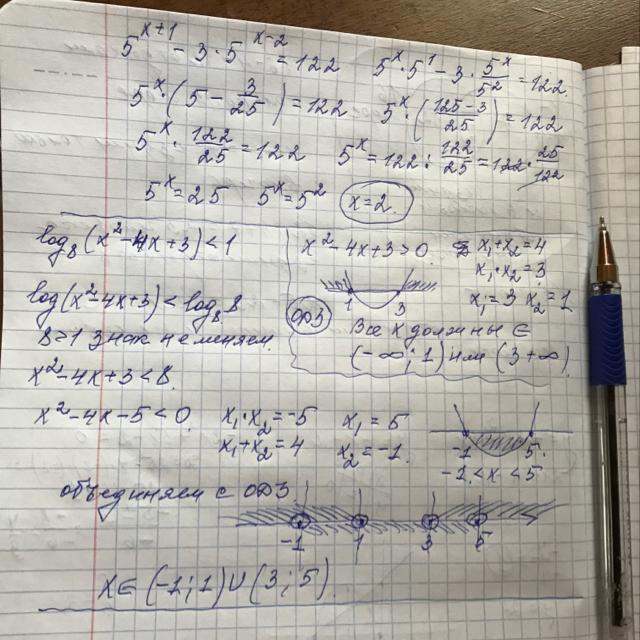 5^{x+1} - 3·5^{x-2} = 122   5^x·5^1 - 3·\frac{5^x}{5^2} = 122.
5^x·(5 - \frac{3}{25}) = 122   5^x·(\frac{125-3}{25}) = 122
5^x·\frac{122}{25} = 122   5^x = 122 : \frac{122}{25} = 122·\frac{25}{122}
5^x = 25   5^x = 5^2   x = 2.
log_8(x^2-4x+3) < 1
log(x^2-4x+3) < log_8 8
8>1 знак не меняем.
x^2-4x+3 < 8.
x^2-4x+3 > 0.   x_1+x_2 = 4
x_1·x_2 = 3
x_1 = 3   x_2 = 1
1   3
ОДЗ   Все x должны ∈
(-∞; 1) или (3 +∞)
x^2-4x-5 < 0.   x_1·x_2 = -5   x_1 = 5
x_1+x_2 = 4   x_2 = -1.
-1   5.
-1 < x < 5
объединяем с ОДЗ.
-1   1   3   5
x ∈ (-1; 1) ∪ (3; 5).